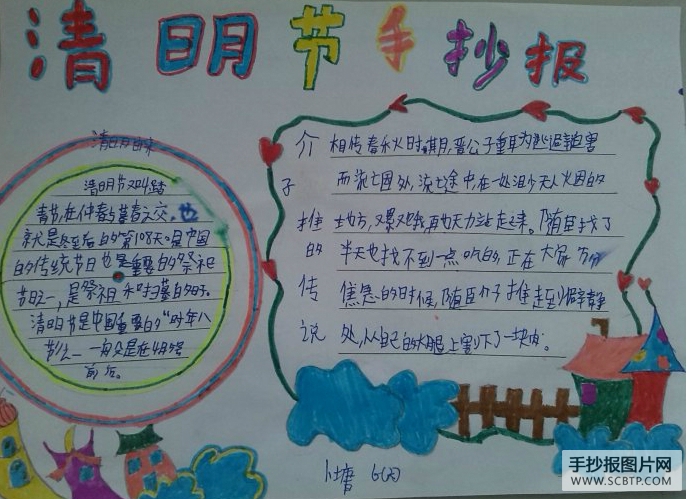 清明节手抄报
清明由来
清明节又叫踏
青节,在仲春与暮春之交,也
就是冬至后的第108天。是中国
的传统节日也是重要的祭祀
节日之一,是祭祖和扫墓的日子。
清明节是中国重要的“时年八
节”之一一般是在
前后。
介子推的传说
相传春秋时期,晋公子重耳为逃避迫害
而流亡国外,流亡途中,在一处渺无人烟的
地方,又累又饿,再也无力站起来。随臣找了
半天也找不到一点吃的,正在大家万分
焦急的时候,随臣介子推走到僻静
处,从自己的大腿上割下了一块肉。
手抄报图片网
WWW.SCBTP.COM